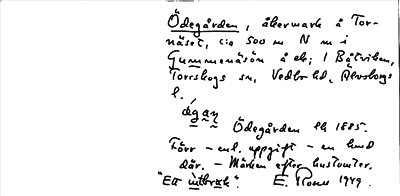 Ödegården, åkermark å Tor-
näset, c:a 500 m N m i
Gummenäsön å ek; 1 Båtviken,
Torrskogs sn, Vedbo hd, Älvsborgs
l.
ö́gan
Ödegården lk 1885.
Förr – enl. uppgift – en hund
där. – Märken efter hustomter.
"Ett utbruk". E. Rosu 1949.